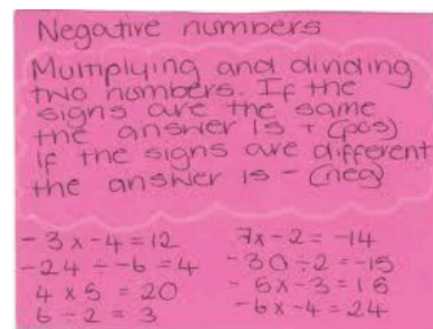 Negative numbers
Multiplying and dividing
two numbers. If the
signs are the same
the answer is + (pos)
If the signs are different
the answer is - (neg)
- 3 x - 4 = 12
- 24 ÷ - 6 = 4
4 x 5 = 20
6 ÷ 2 = 3
7 x - 2 = - 14
- 30 ÷ 2 = - 15
- 5 x - 3 = 15
- 6 x - 4 = 24